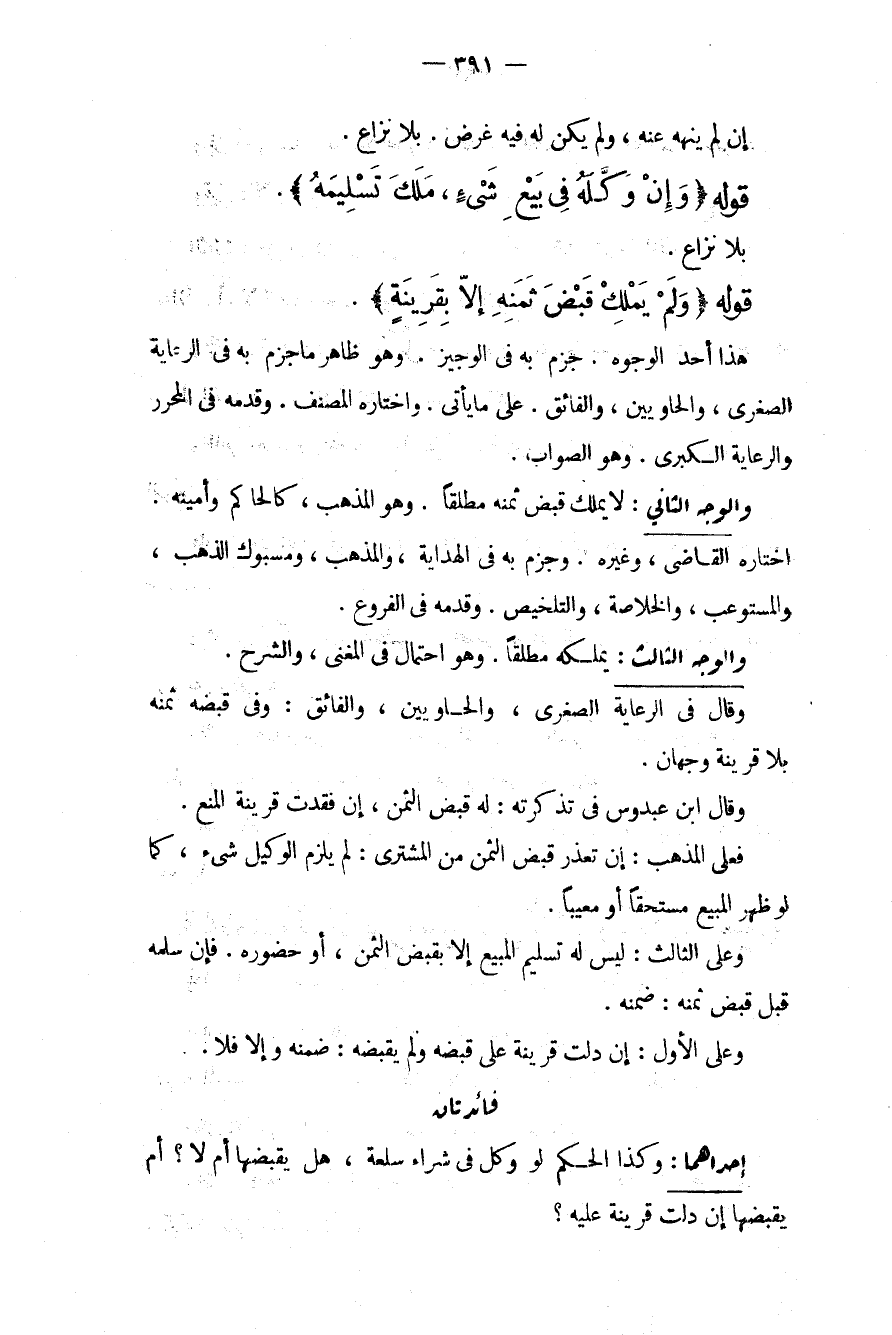 — ٣٩١ —
إن لم ينهه عنه ، ولم يكن له فيه غرض . بلا نزاع .
قوله ﴿ وَإِنْ وَكَّلَهُ فِى بَيْعِ شَىْءٍ ، مَلَكَ تَسْلِيمَهُ ﴾ .
بلا نزاع .
قوله ﴿ وَلَمْ يَمْلِكْ قَبْضَ ثَمَنِهِ إلاَّ بِقَرِينَةٍ ﴾ .
هذا أحد الوجوه . جزم به فى الوجيز . وهو ظاهر ماجزم به فى الرعاية
الصغرى ، والحاويين ، والفائق . على مايأتى . واختاره المصنف . وقدمه فى المحرر
والرعاية الكبرى . وهو الصواب .
والوجه الثاني : لا يملك قبض ثمنه مطلقاً . وهو المذهب ، كالحاكم وأمينه .
اختاره القاضى ، وغيره . وجزم به فى الهداية ، والمذهب ، ومسبوك الذهب ،
والمستوعب ، والخلاصة ، والتلخيص . وقدمه فى الفروع .
والوجه الثالث : يملكه مطلقاً . وهو احتمال فى المغنى ، والشرح .
وقال فى الرعاية الصغرى ، والحاويين ، والفائق : وفى قبضه ثمنه
بلا قرينة وجهان .
وقال ابن عبدوس فى تذكرته : له قبض الثمن ، إن فقدت قرينة المنع .
فعلى المذهب : إن تعذر قبض الثمن من المشترى : لم يلزم الوكيل شىء ، كما
لو ظهر المبيع مستحقاً أو معيباً .
وعلى الثالث : ليس له تسليم المبيع إلا بقبض الثمن ، أو حضوره . فإن سلمه
قبل قبض ثمنه : ضمنه .
وعلى الأول : إن دلت قرينة على قبضه ولم يقبضه : ضمنه وإلا فلا .
فائدتان
إحداهما : وكذا الحكم لو وكل فى شراء سلعة ، هل يقبضها أم لا ؟ أم
يقبضها إن دلت قرينة عليه ؟